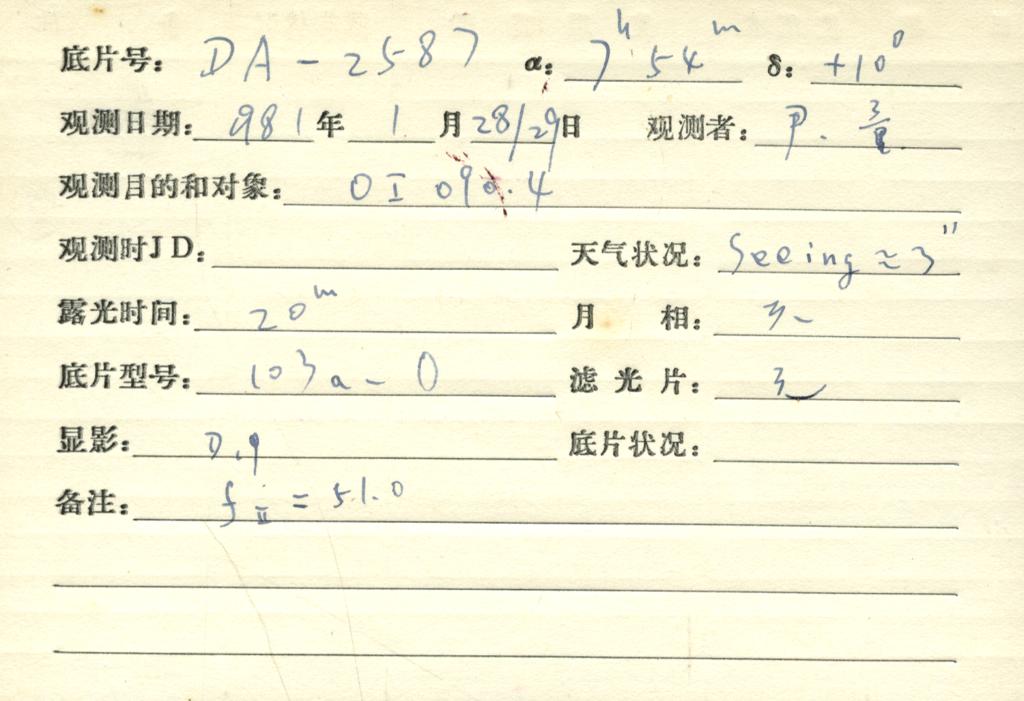 底片号: DA-2587 α: 7ʰ54ᵐ δ: +10°
观测日期: 1981年 1月28/29日 观测者: P.
观测目的和对象: OI 090.4
观测时JD: 天气状况: Seeing ≈ 3"
露光时间: 20ᵐ 月 相: 无
底片型号: 103a-O 滤光片: 无
显影: D.19 底片状况:
备注: fⅡ = 51.0